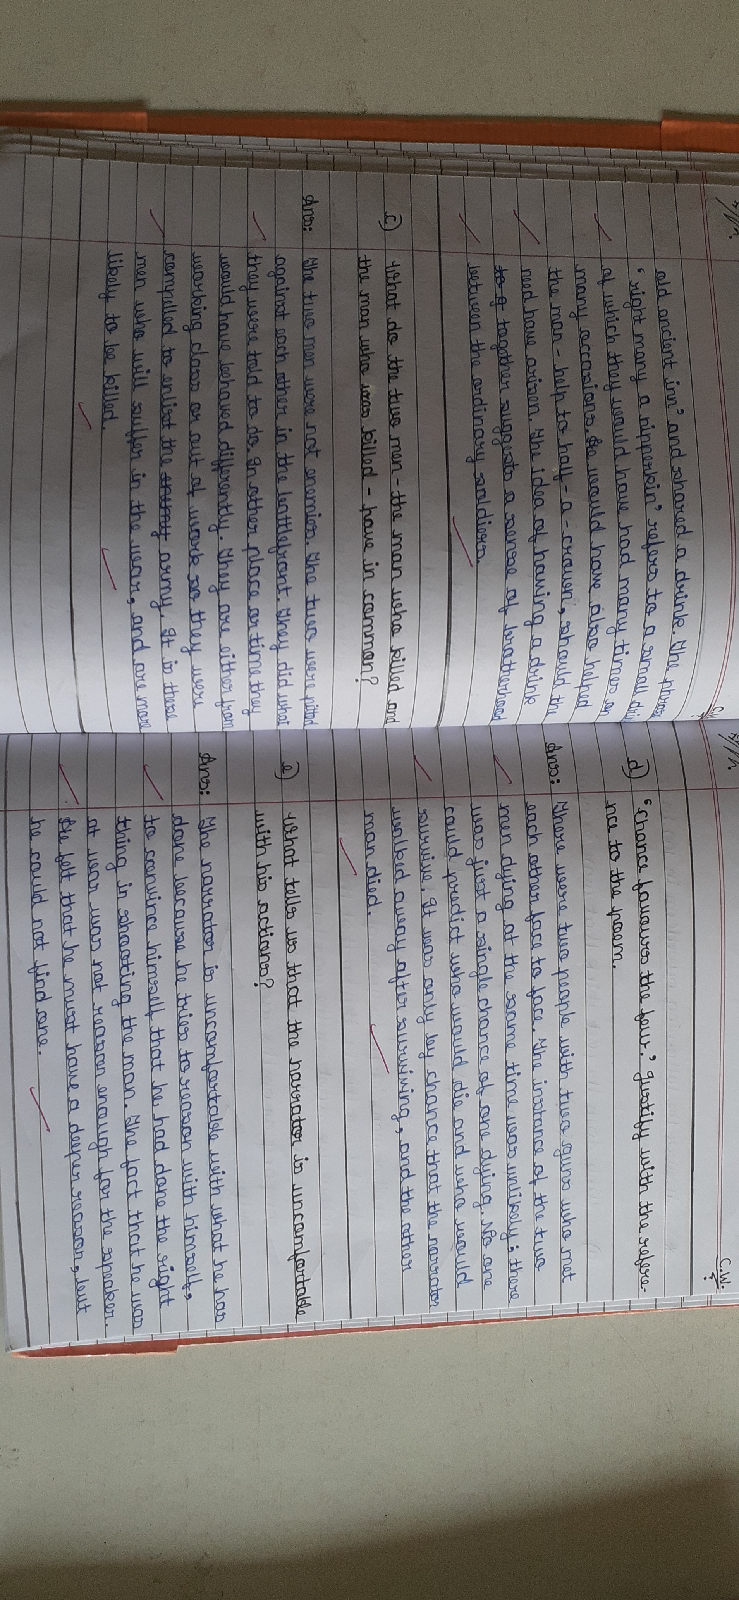 old ancient inn' and shared a drink. The phrase
'right many a nipperkin' refers to a small
of which they would have had many times on
many occasions. He would have also helped
the man - help to half - a - crown, should the
need have arisen. The idea of having a drink
together suggests a sense of brotherhood
between the ordinary soldiers.
c) What do the two men - the man who killed and
the man who was killed - have in common?
Ans: The two men were not enemies. The two were pitted
against each other in the battlefront. They did what
they were told to do. In other place or time they
would have behaved differently. They are either from
working class or out of work so they were
compelled to enlist the army. It is these
men who will suffer in the war, and are more
likely to be killed.
C.W:
d) 'Chance favours the four.' Justify with the refere-
nce to the poem.
Ans: There were two people with two guns who met
each other face to face. The instance of the two
men dying at the same time was unlikely; there
was just a single chance of one dying. No one
could predict who would die and who would
survive. It was only by chance that the narrator
walked away after surviving, and the other
man died.
e) What tells us that the narrator is uncomfortable
with his actions?
Ans: The narrator is uncomfortable with what he has
done because he tries to reason with himself,
to convince himself that he had done the right
thing in shooting the man. The fact that he was
at war was not reason enough for the speaker.
He felt that he must have a deeper reason, but
he could not find one.